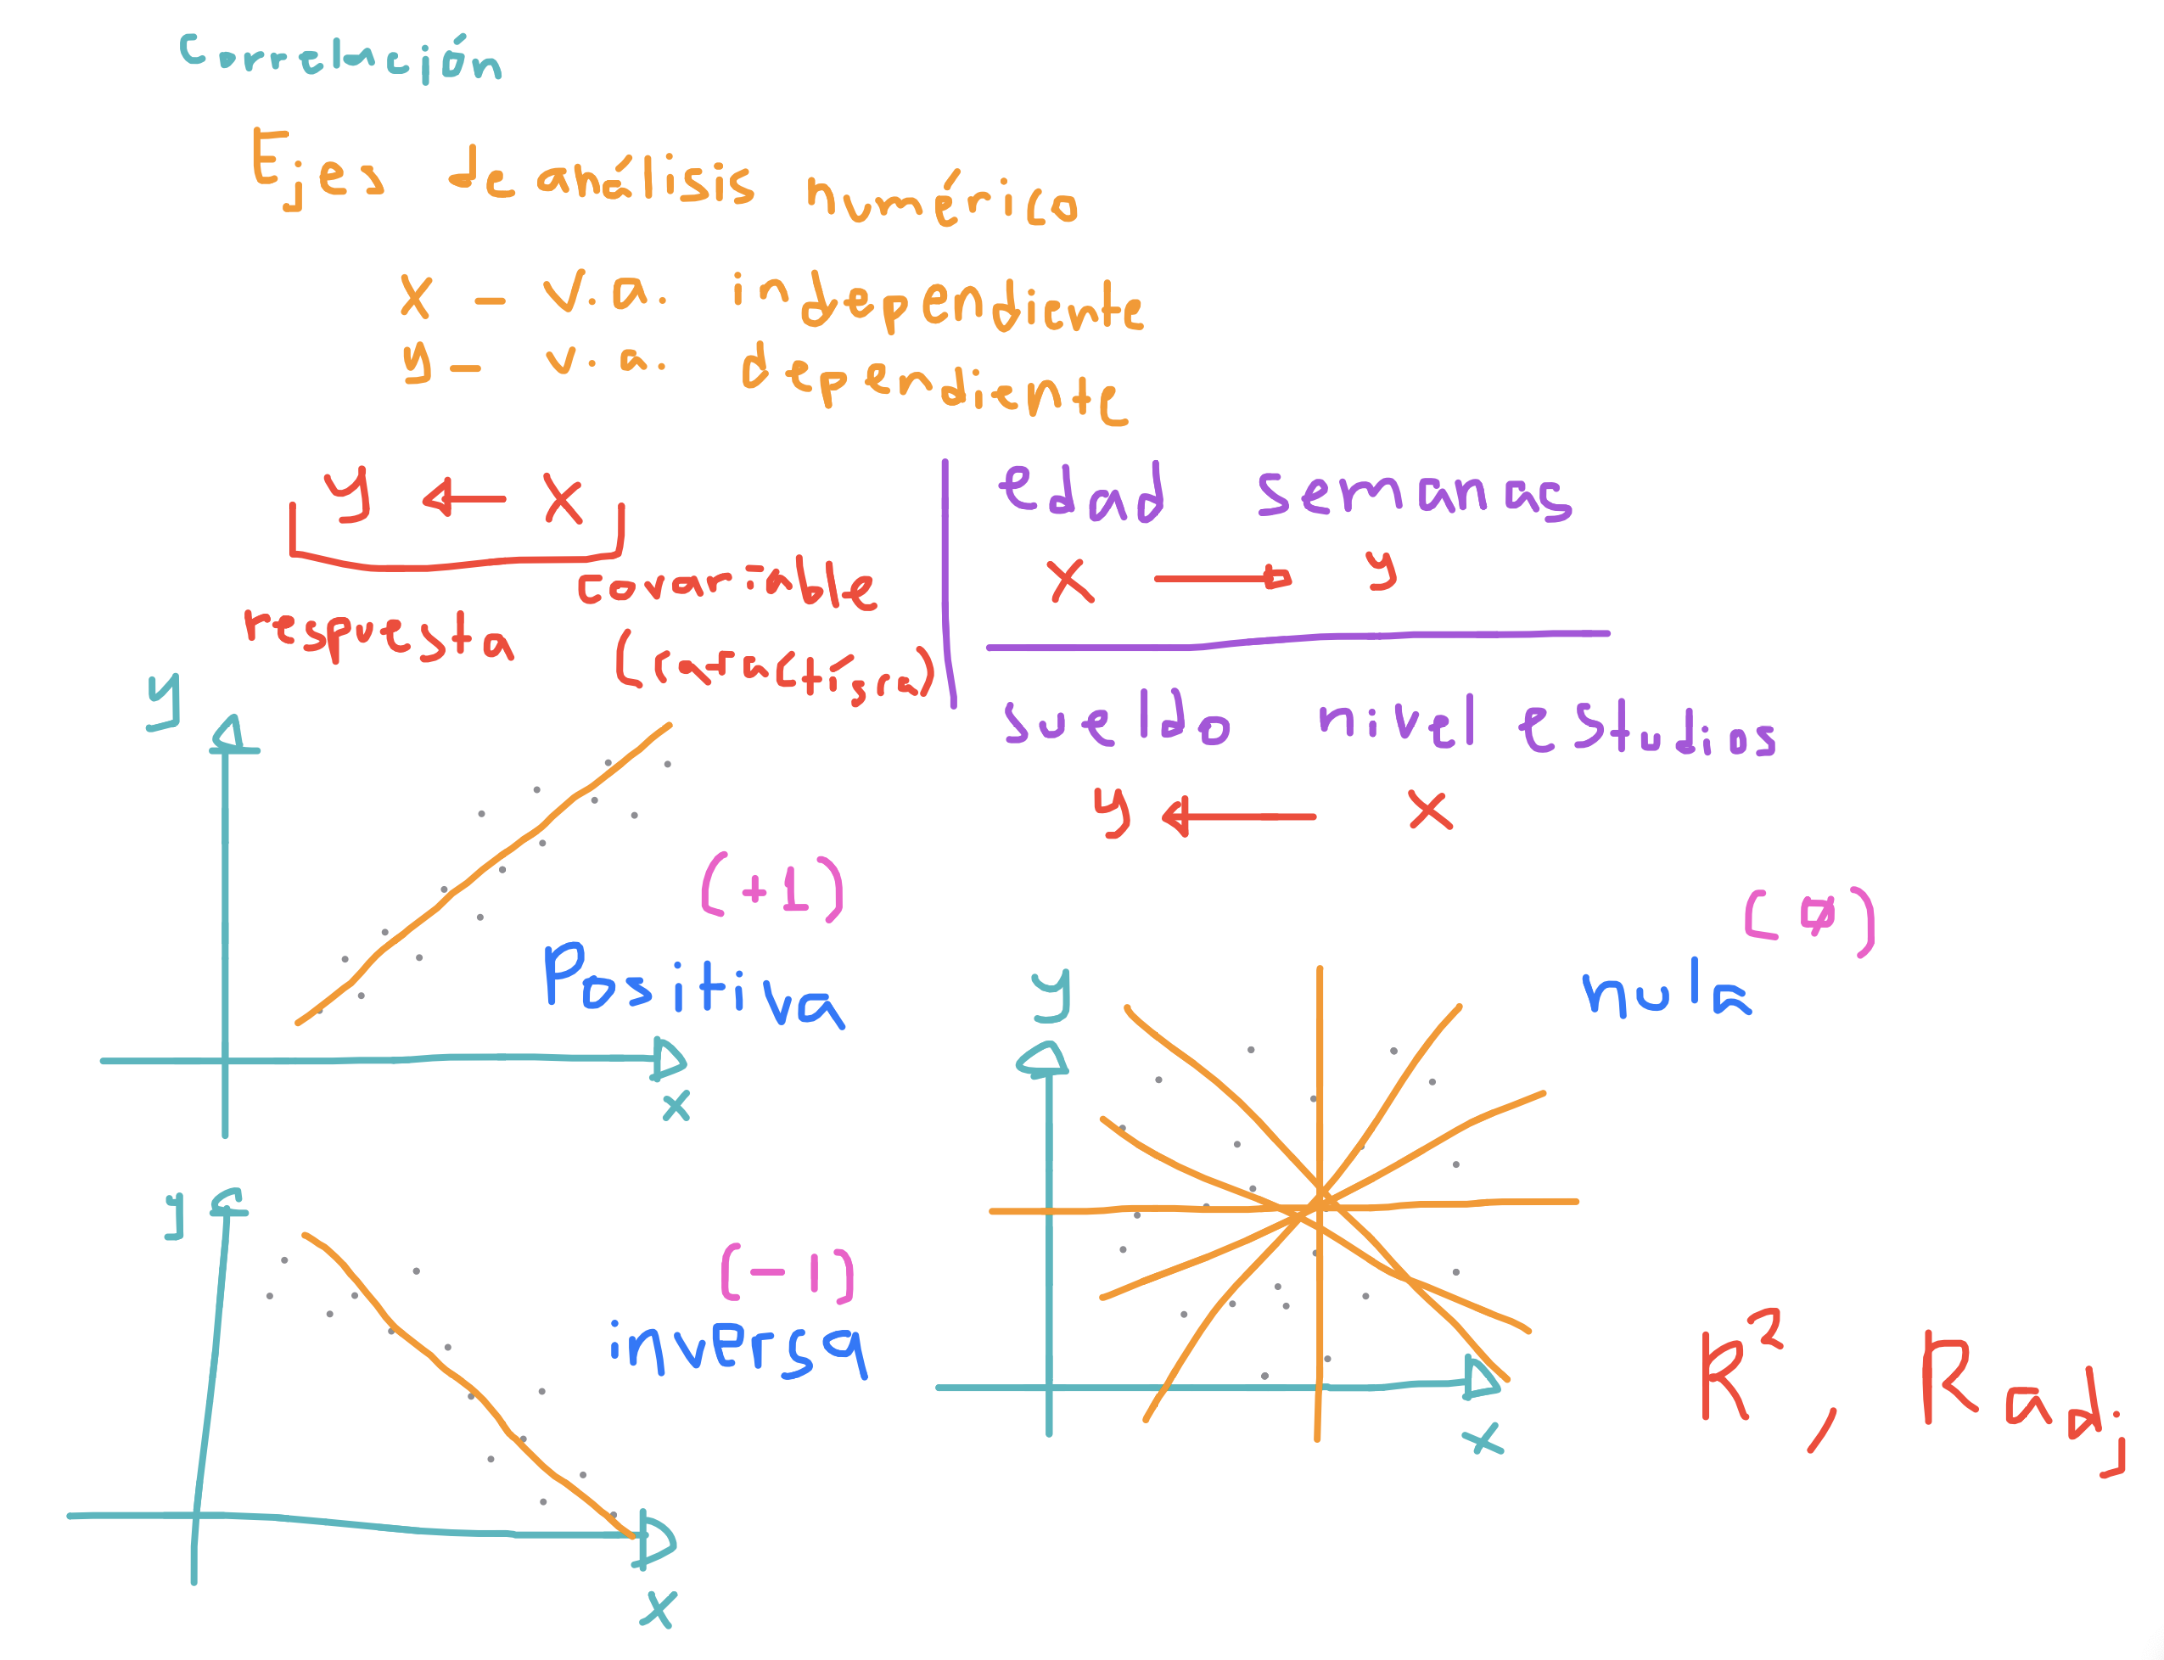 Correlación
Ejes de análisis numérico
x – v.a. independiente
y – v.a. dependiente
y ← x
respuesta
covariable
(característica)
edad semanas
x → y
sueldo nivel estudios
y ← x
y
(+1)
Positiva
x
y
(-1)
inversa
x
(0)
nula
y
x
R², R adj